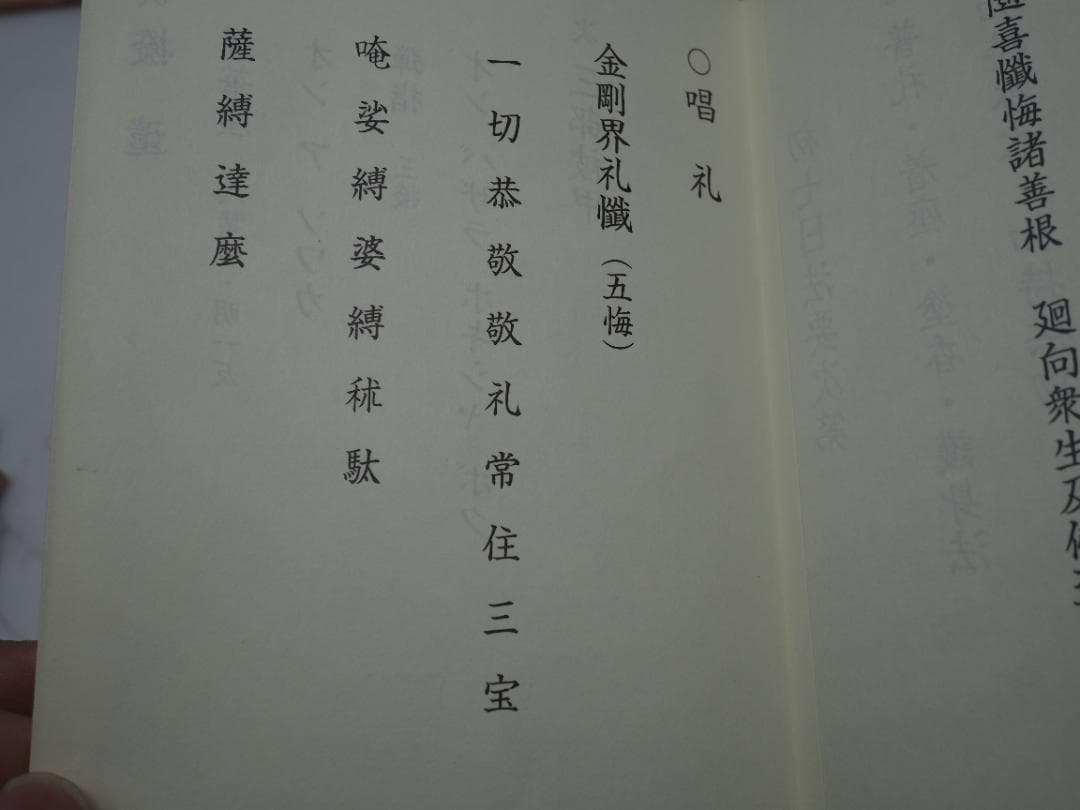 隨喜懺悔諸善根 廻向衆生及
○唱礼
金剛界礼懺（五悔）
一切恭敬敬礼常住三宝
唵娑縛婆縛秫駄
薩縛達麼